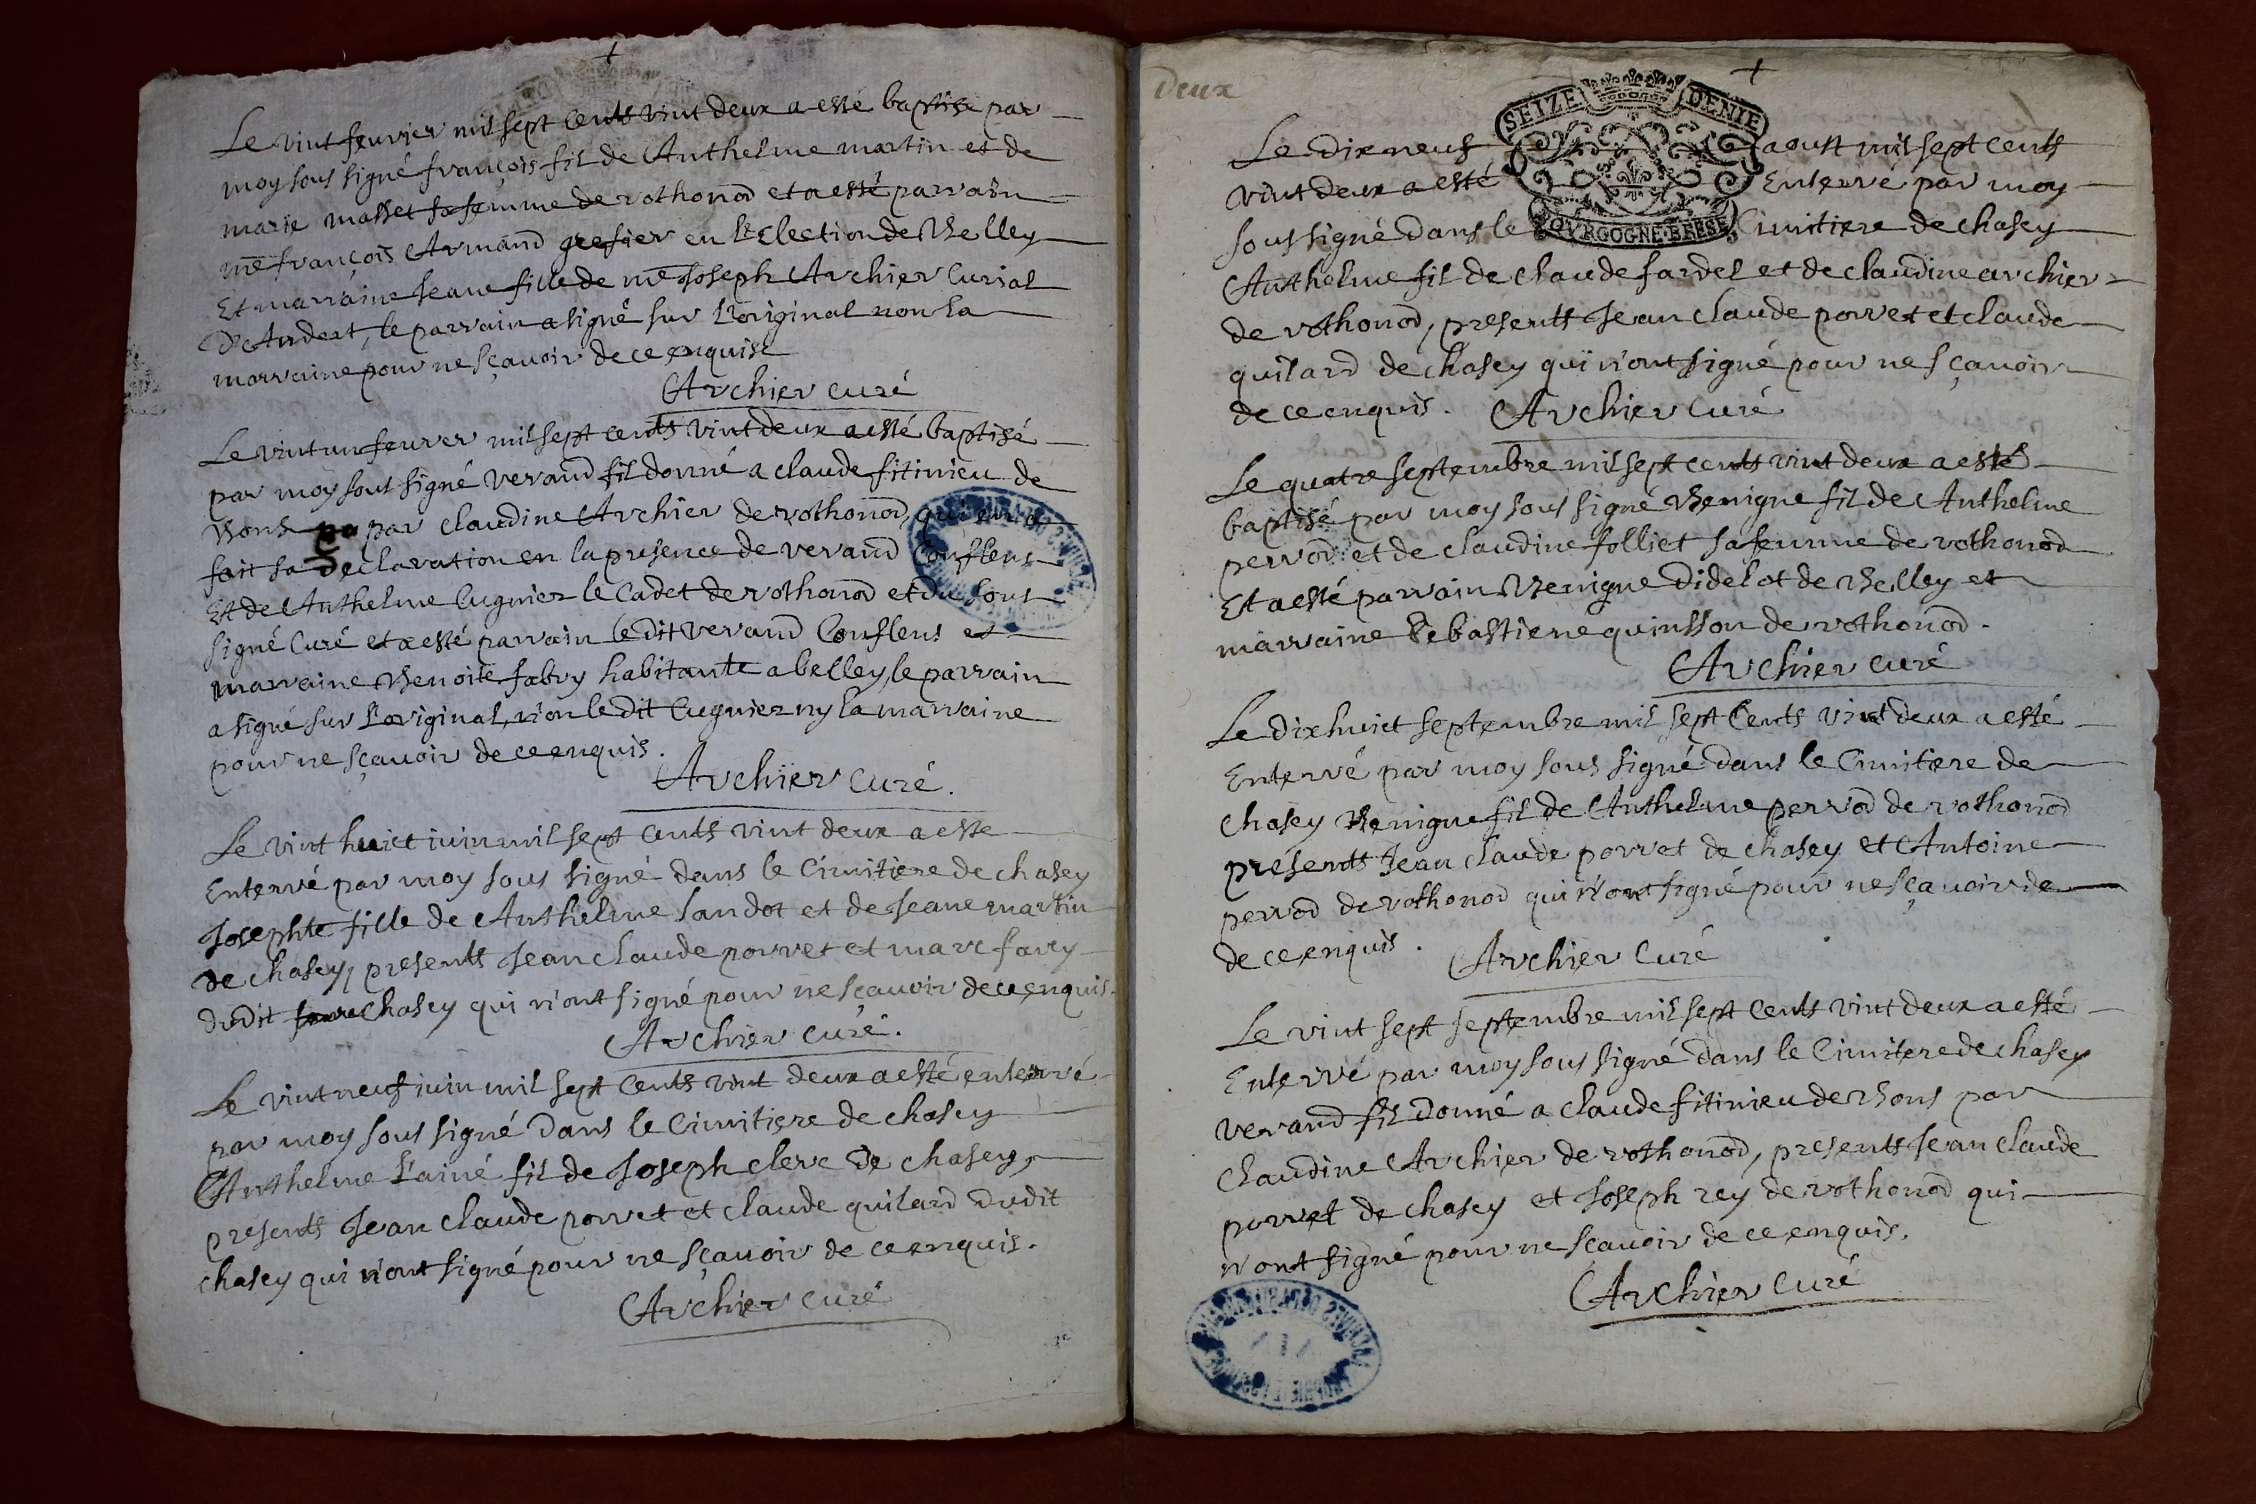 Le vint feuvrier mil sept cents vint deux a esté baptisé par
moy sous signé françois fil de Anthelme martin et de
marie masset sa femme de rothonod et a esté parrain
me françois Armand grefier en l'Election de Belley
Et marraine Jeane fille de me Joseph Archier Curial
D'Andert, le parrain a signé sur l'original non la
marraine pour ne sçavoir de ce enquise
Archier curé
Le vint un feuvrer mil sept cents vint deux a esté baptisé
par moy sous signé verand fil donné a claude fitinieu de
Bons par claudine Archier de rothonod, qui en a
fait sa declaration en la presence de verand Conflens
Et de Anthelme Cugnier le Cadet de rothonod et du sous
signé Curé et a esté parrain le dit verand Conflens et
marraine Benoite fabry habitante a belley, le parrain
a signé sur l'original, non le dit Cugnier ny la marraine
pour ne sçavoir de ce enquis.
Archier curé.
Le vint huict iuin mil sept cents vint deux a esté
Enterré par moy sous signé dans le Cimitiere de chasey
Josephte fille de Anthelme Sandot et de Jeane martin
de chasey, presents Jean claude porret et marc favry
du dit Chasey qui n'ont signé pour ne sçavoir de ce enquis.
Archier curé.
Le vint neuf iuin mil sept cents vint deux a esté enterré
par moy sous signé dans le Cimitiere de chasey
Anthelme l'ainé fil de Joseph clerc de chasey,
presents Jean claude porret et claude quilard dudit
chasey qui n'ont signé pour ne sçavoir de ce enquis.
Archier curé
Deux
SEIZE DENIE
BOVRGOGNE·BRESSE
Le dix neuf aoust mil sept cents
vint deux a esté Enterré par moy
sous signé dans le Cimitiere de chasey
Anthelme fil de claude fardel et de claudine archier
de rothonod, presents Jean claude porret et claude
quilard de chasey qui n'ont signé pour ne sçavoir
de ce enquis. Archier Curé
Le quatre septembre mil sept cents vint deux a esté
baptisé par moy sous signé Benigne fil de Anthelme
perrod et de claudine folliet sa femme de rothonod
Et a esté parrain Benigne Didelot de Belley et
marraine Sebastiene quinsson de rothonod.
Archier curé
Le dix huict septembre mil sept Cents vint deux a esté
Enterré par moy sous signé dans le Cimitiere de
chasey Benigne fil de Anthelme perrod de rothonod
presents Jean claude porret de chasey et Antoine
perrod de rothonod qui n'ont signé pour ne sçavoir de
de ce enquis. Archier Curé
Le vint sept septembre mil sept cents vint deux a esté
Enterré par moy sous signé dans le Cimitere de chasey
verand fil donné a claude fitinieu de Bons par
claudine Archier de rothonod, presents Jean claude
porret de chasey et Joseph rey de rothonod qui
n'ont signé pour ne sçavoir de ce enquis.
Archier curé